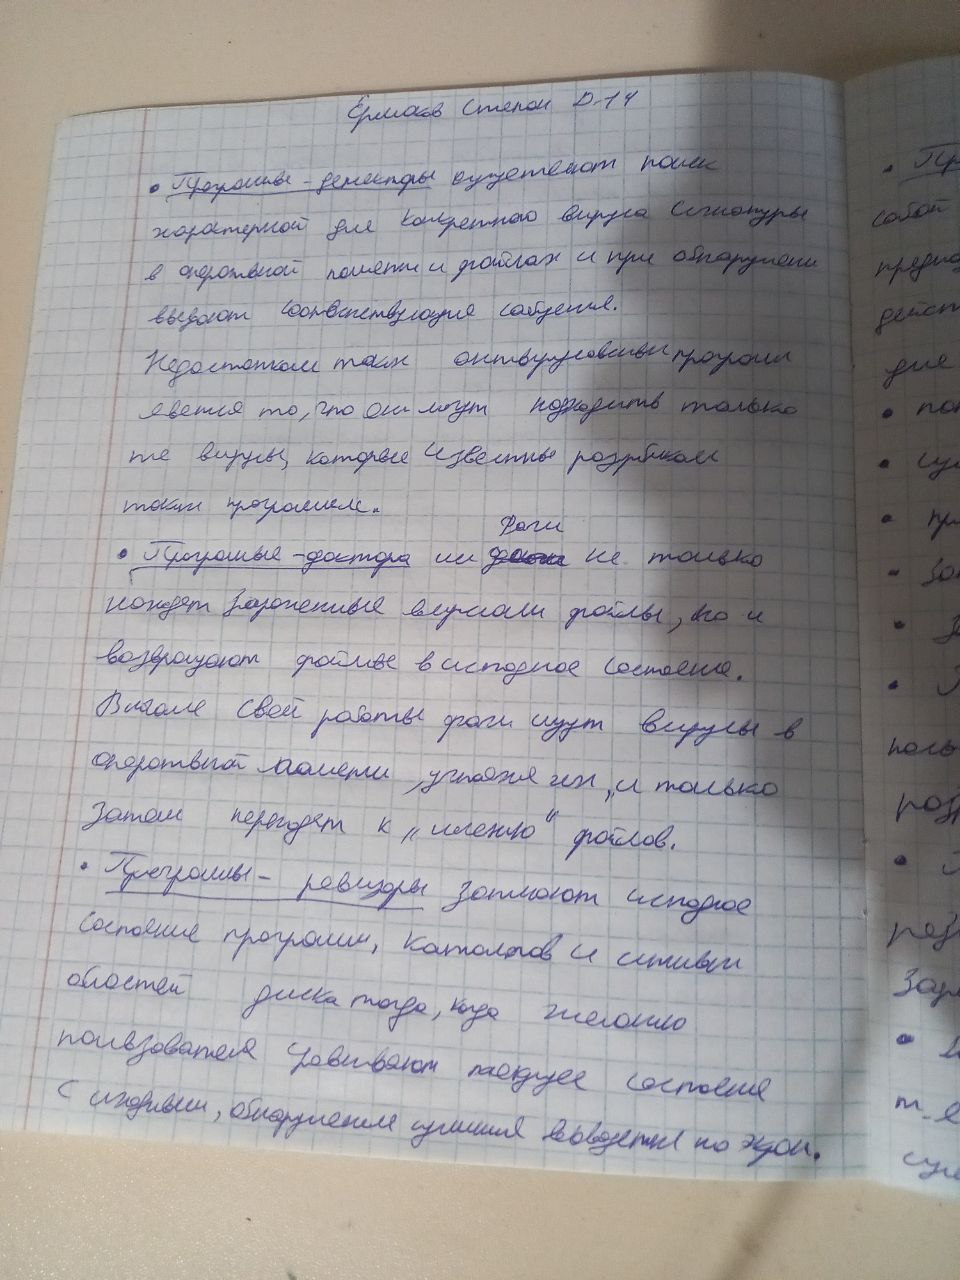 Ермаков Степан D-14
• Программы-детекторы осуществляют поиск
характерной для конкретного вируса сигнатуры
в оперативной памяти и файлах и при обнаружении
выдают соответствующие сообщения.
Недостатком таких антивирусных программ
является то, что они могут находить только
те вирусы, которые известны разработчикам
таких программ.
Фаги
• Программы-доктора или не только
находят зараженные вирусами файлы, но и
возвращают файлы в исходное состояние.
В начале своей работы фаги ищут вирусы в
оперативной памяти, уничтожая их, и только
затем переходят к „лечению“ файлов.
• Программы-ревизоры запоминают исходное
состояние программ, каталогов и системных
областей диска тогда, когда желанию
пользователя сравнивают текущее состояние
с исходным, обнаруженные изменения выводятся на экран.
• Пр
собой
дейст
для
• пот
• при
• П
• П